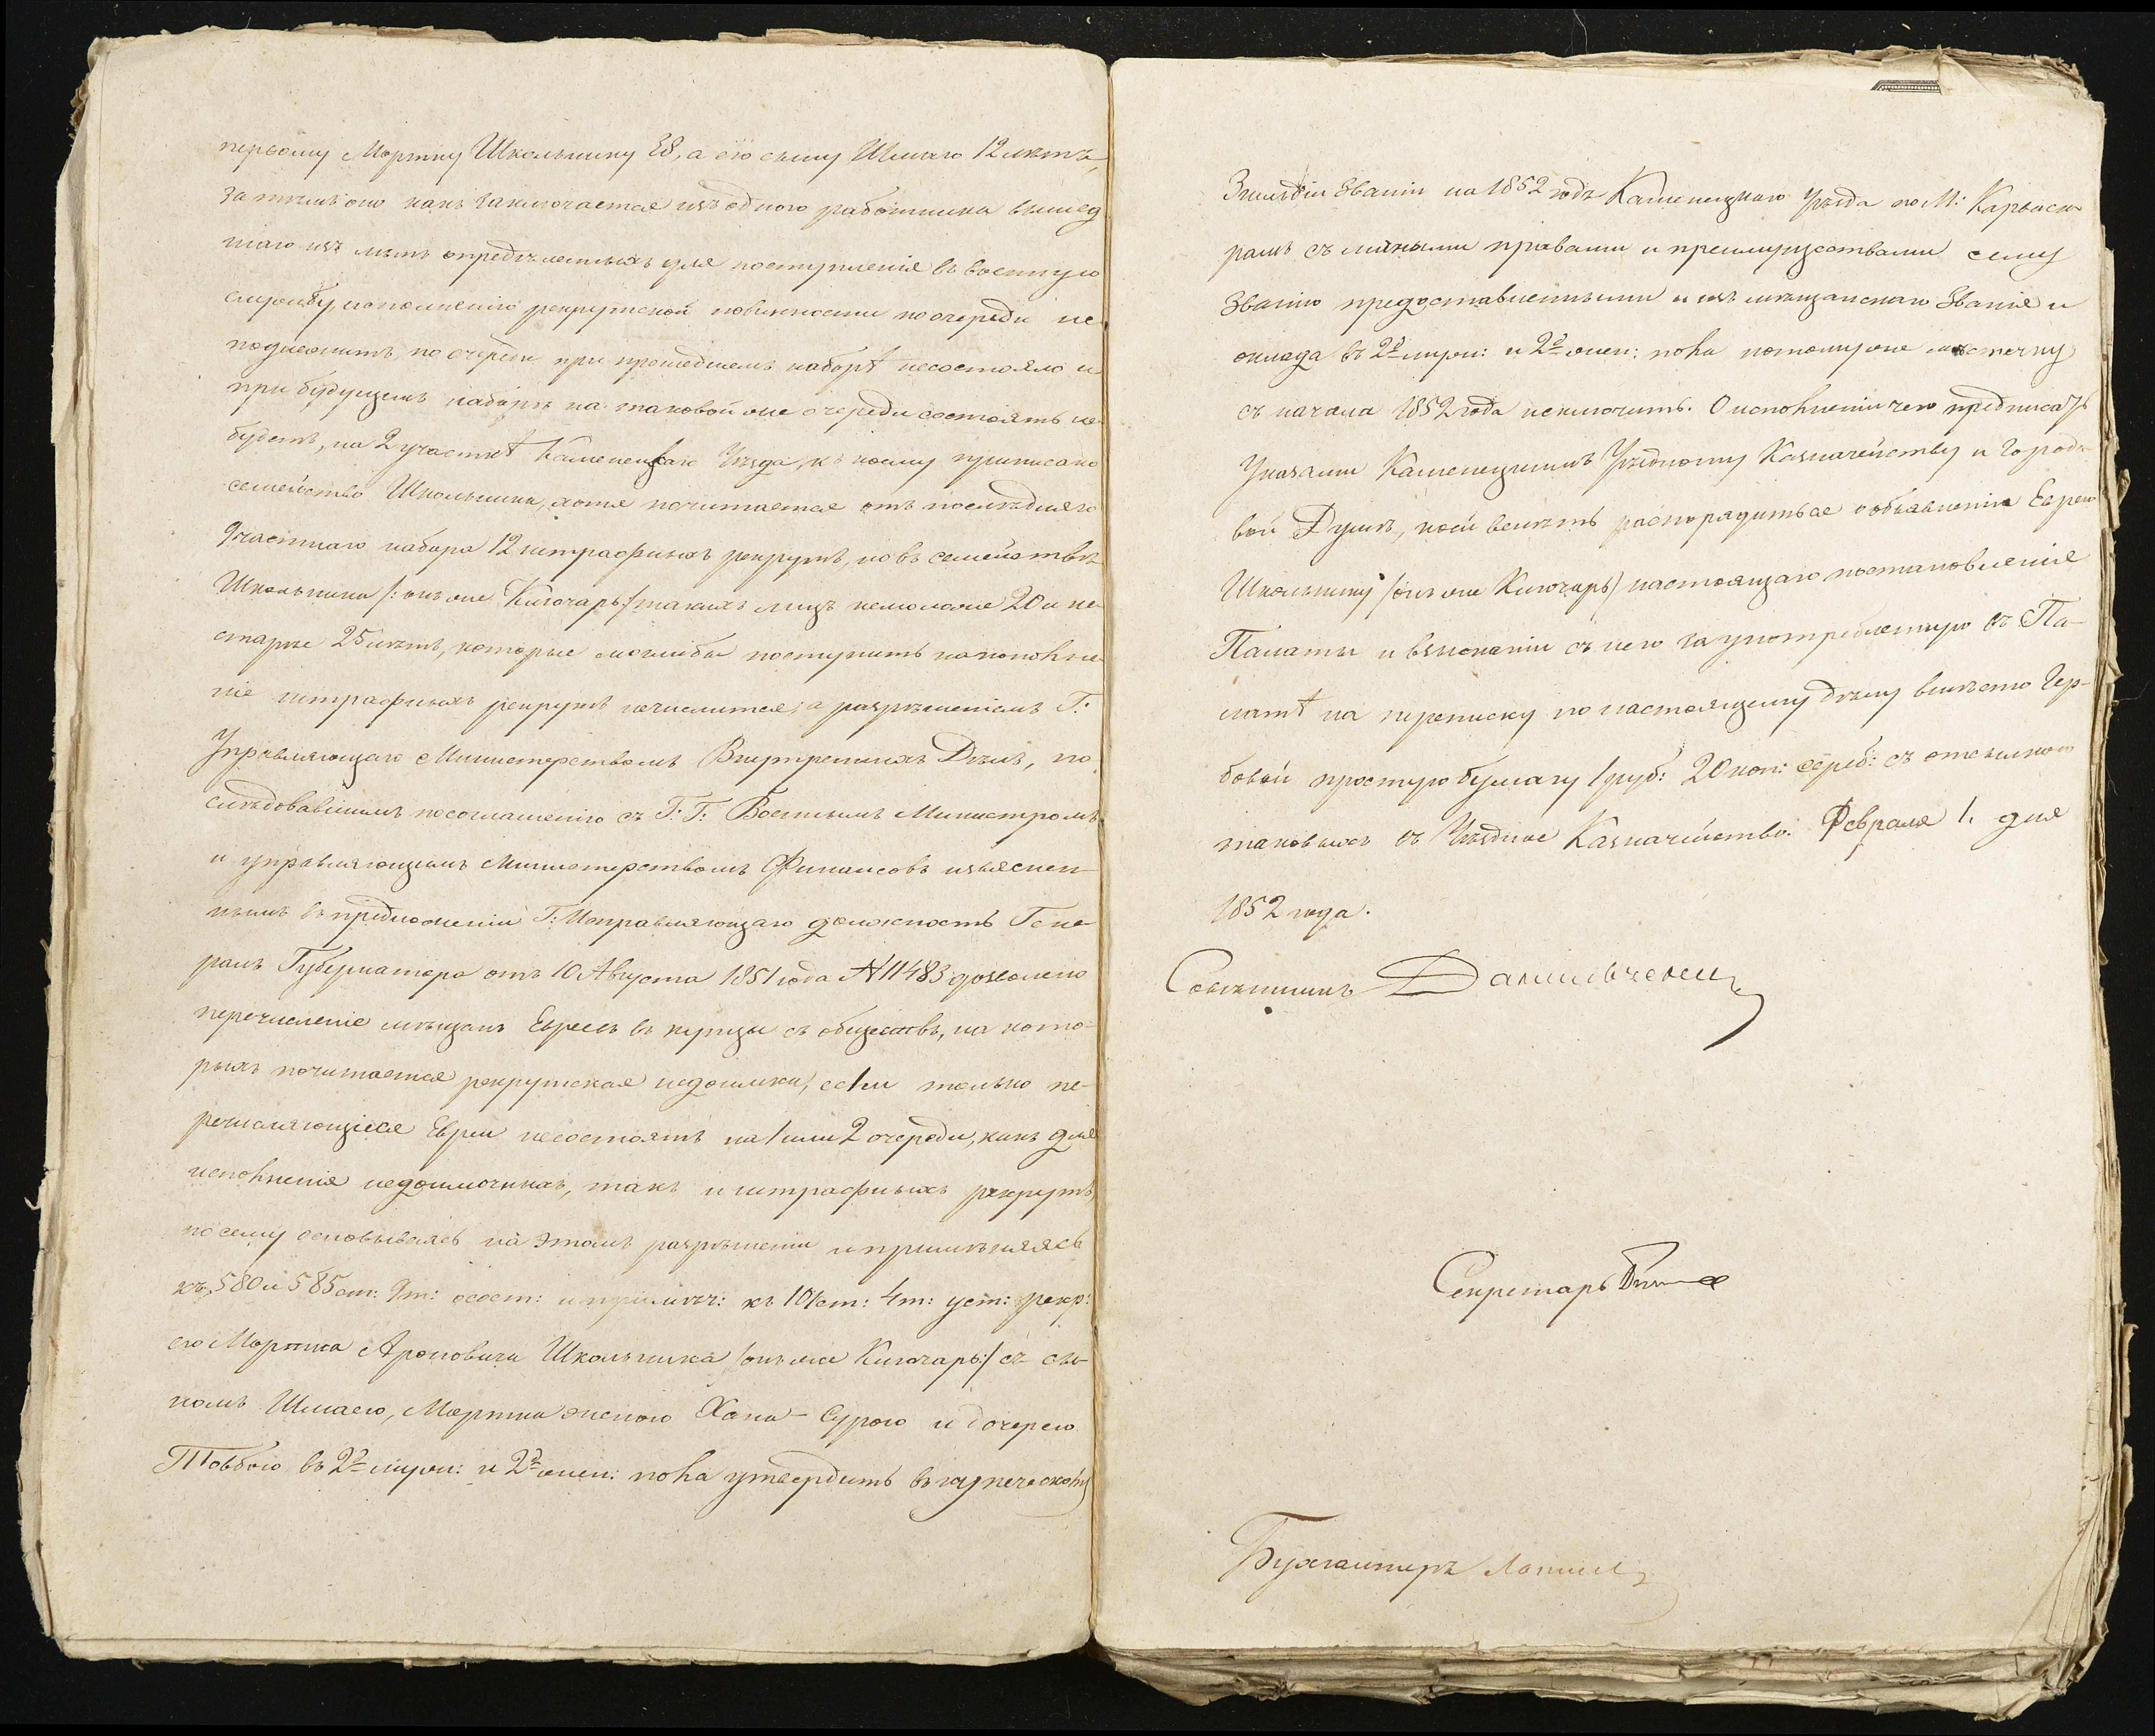 первому Мортку Школьнику 38, а его сыну Шмаю 12 лѣтъ,
затѣмъ оно какъ заключается изъ одного работника вышед
шаго изъ лѣтъ опредѣленныхъ для поступленія въ военную
службу, исполненію рекрутской повинности по очереди не
подлежитъ, по очереди при прошедшемъ наборѣ несостояло и
при будущемъ наборѣ на таковой же очереди состоять не
будетъ, на 2 участкѣ Каменецкаго Уѣзда, къ коему приписано
семейство Школьника, хотя почитается отъ послѣдняго
9 частнаго набора 12 штрафныхъ рекрутъ, но въ семействѣ
Школьника /: онъ же Ключарь/ такихъ лицъ немоложе 20 и не
старѣе 25 лѣтъ, которые моглибы поступить на пополне
ніе штрафныхъ рекрутъ нечислится, а разрѣшеніемъ Г:
Управляющаго Министерствомъ Внутреннихъ Дѣлъ, по
слѣдовавшимъ посоглашенію съ Г: Г: Военнымъ Министромъ
и управляющимъ Министерствомъ Финансовъ изъяснен-
нымъ въ предложеніи Г: Исправляющаго должность Гене-
ралъ Губернатора отъ 10 Августа 1851 года № 11483 дозволено
перечисленіе мѣщанъ Евреевъ въ купцы съ обществъ, на кото-
рыхъ почитается рекрутская недоимка, если только пе-
речисляющіеся Евреи несостоятъ на 1 или 2 очереди, какъ для
исполненія недоимочныхъ, такъ и штрафныхъ рекрутъ,
посему основываясь на этомъ разрѣшеніи и примѣняясь
къ 580 и 585 ст: 9 т: осост: и примѣч: къ 101 ст: 4 т: уст: рекр:
его Мортка Ароновича Школьника /онъ же Ключарь:/ съ сы-
номъ Шмаею, Мортка женою Хана-Сурою и дочерею
Товбою въ 2й муж: и 2й жен: пола утвердить въ купеческомъ
3 гильдіи званіи на 1852 годъ Каменецкаго Уѣзда по М:
рамъ съ правами и преимуществами сему
званію предоставленными и изъ мѣщанскаго званія и
оклада въ 2й муж: и 2й жен: пола потомуже мѣстечку
съ начала 1852 года исключить. О исполненіи чего предписать
Указами Каменецкимъ Уѣздному Казначейству и Городо-
вой Думѣ, коей велѣть распорядиться объявленіи Еврею
Школьнику /онъ же Ключарь/ настоящаго постановленія
Палаты и взысканіи съ него за употребленную въ Па-
латѣ на переписку по настоящему дѣлу вмѣсто Гер-
бовой простую бумагу 1 руб: 20 коп: сереб: съ отсылкою
таковыхъ въ Уѣздное Казначейство. Февраля 1. дня
1852 года.
Совѣтникъ
Секретарь
Бухгалтеръ